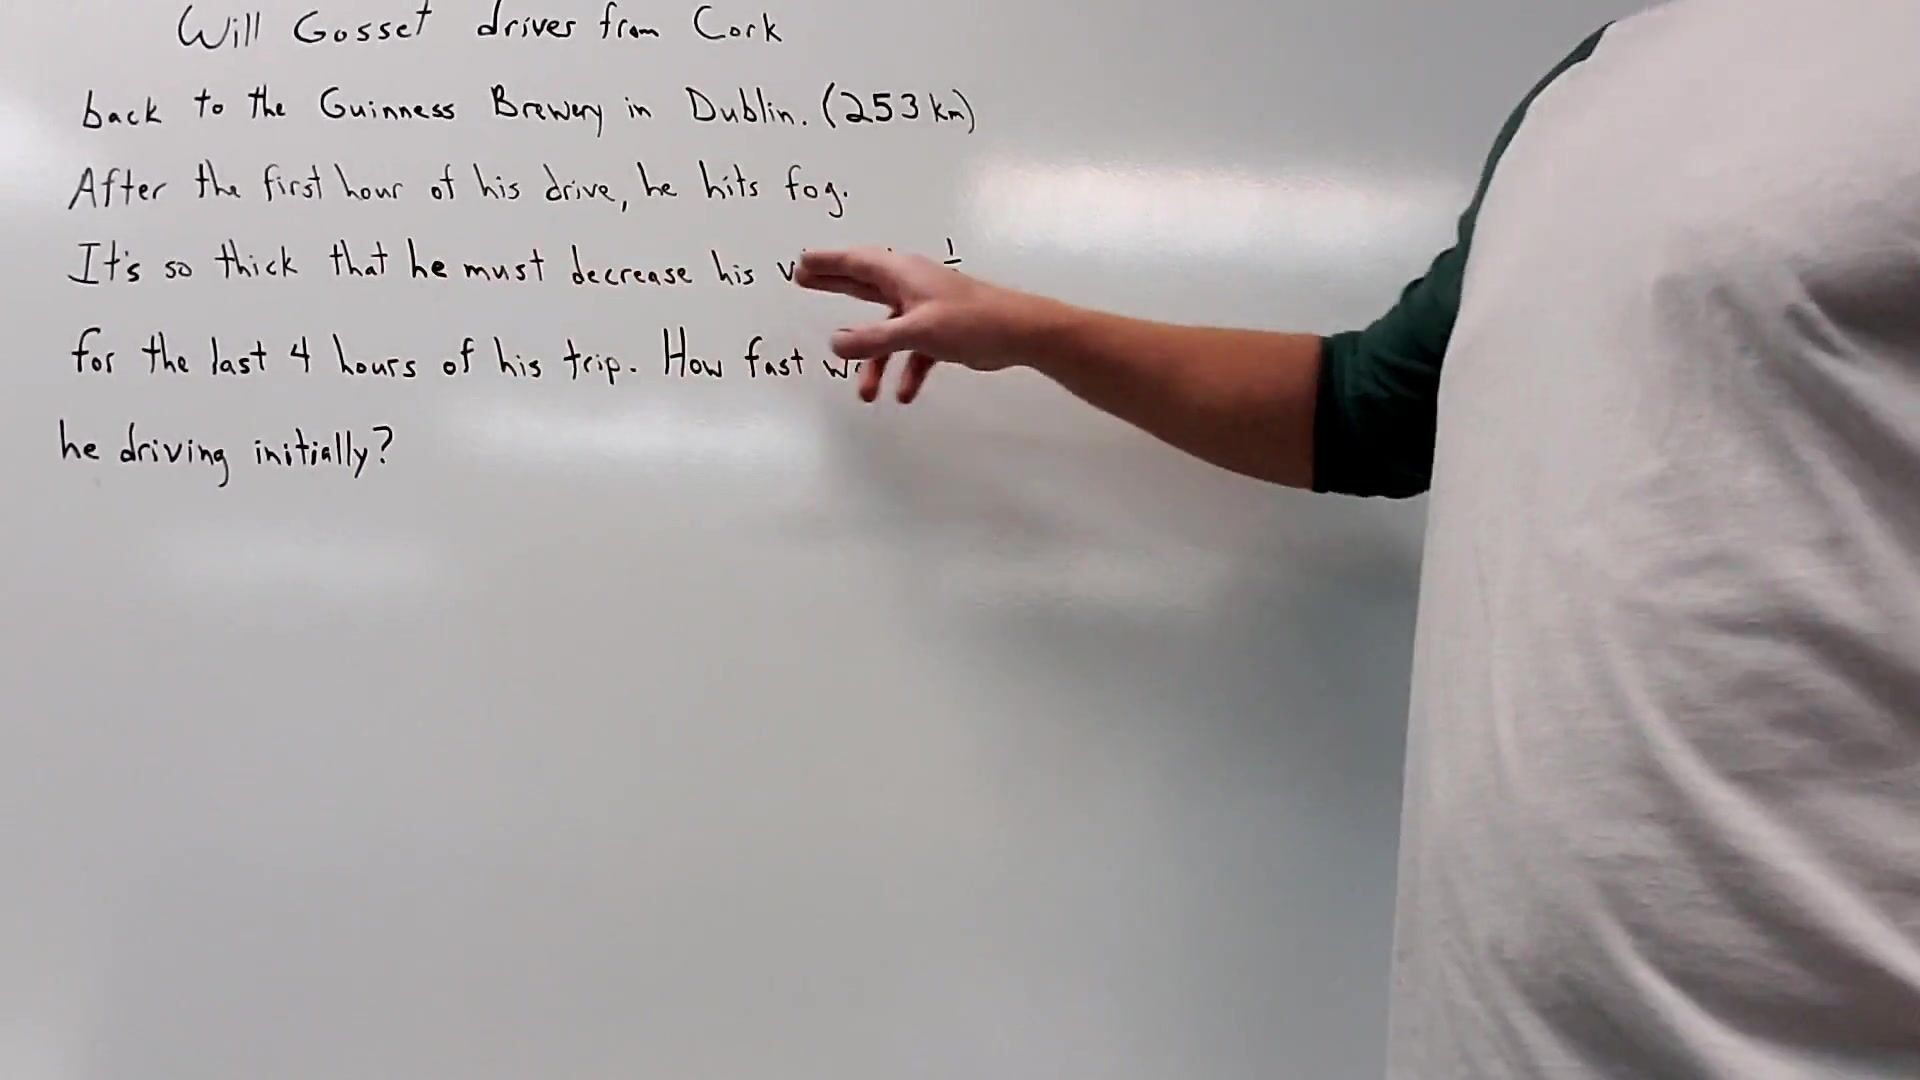 Will Gosset drives from Cork
back to the Guinness Brewery in Dublin. (253 km)
After the first hour of his drive, he hits fog.
It's so thick that he must decrease his
for the last 4 hours of his trip. How fast
he driving initially?